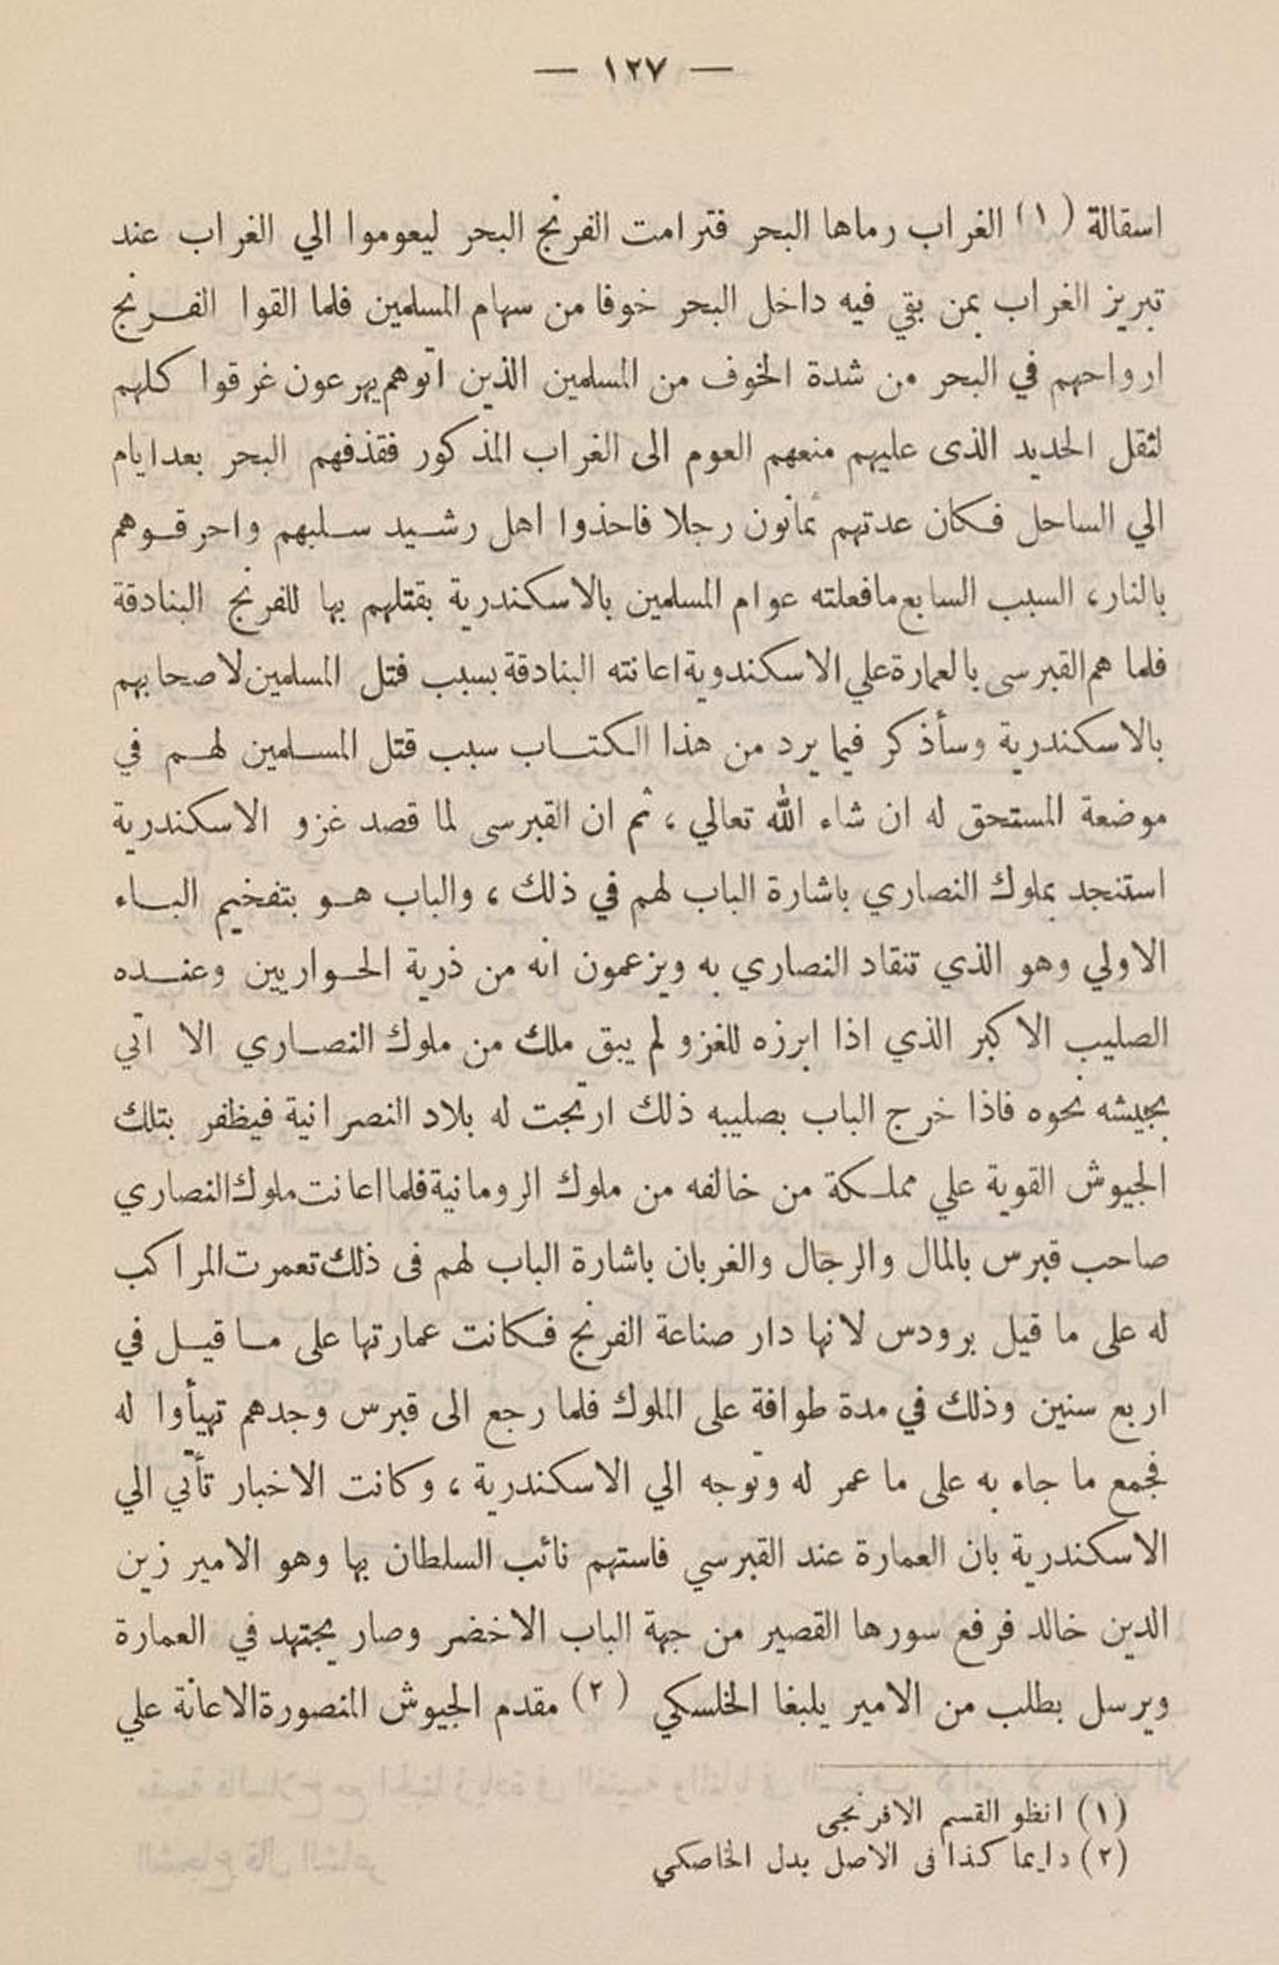 — ١٢٧ —
اسقالة (١) الغراب رماها البحر فترامت الفرنج البحر ليعوموا الي الغراب عند
تبريز الغراب بمن بقي فيه داخل البحر خوفا من سهام المسلمين فلما القوا الفرنج
ارواحهم في البحر من شدة الخوف من المسلمين الذين اتوهم يهرعون غرقوا كلهم
لثقل الحديد الذى عليهم منعهم العوم الى الغراب المذكور فقذفهم البحر بعد ايام
الي الساحل فكان عدتهم ثمانون رجلا فاخذوا اهل رشيد سلبهم واحرقوهم
بالنار، السبب السابع مافعلته عوام المسلمين بالاسكندرية بقتلهم بها للفرنج البنادقة
فلما هم القبرسى بالعمارة علي الاسكندوية اعانته البنادقة بسبب قتل المسلمين لاصحابهم
بالاسكندرية وسأذكر فيما يرد من هذا الكتاب سبب قتل المسلمين لهم في
موضعة المستحق له ان شاء الله تعالي، ثم ان القبرسى لما قصد غزو الاسكندرية
استنجد بملوك النصاري باشارة الباب لهم في ذلك، والباب هو بتفخيم الباء
الاولي وهو الذي تنقاد النصاري به ويزعمون انه من ذرية الحواريين وعنده
الصليب الاكبر الذي اذا ابرزه للغزو لم يبق ملك من ملوك النصاري الا اتي
بجيشه نحوه فاذا خرج الباب بصليبه ذلك ارتجت له بلاد النصرانية فيظفر بتلك
الجيوش القوية علي مملكة من خالفه من ملوك الرومانية فلما اعانت ملوك النصاري
صاحب قبرس بالمال والرجال والغربان باشارة الباب لهم فى ذلك تعمرت المراكب
له على ما قيل برودس لانها دار صناعة الفرنج فكانت عمارتها على ما قيل في
اربع سنين وذلك في مدة طوافة على الملوك فلما رجع الى قبرس وجدهم تهيأوا له
فجمع ما جاء به على ما عمر له وتوجه الي الاسكندرية، وكانت الاخبار تأتي الي
الاسكندرية بان العمارة عند القبرسي فاستهم نائب السلطان بها وهو الامير زين
الدين خالد فرفع سورها القصير من جهة الباب الاخضر وصار يجتهد في العمارة
ويرسل بطلب من الامير يلبغا الخلسكي (٢) مقدم الجيوش المنصورة الاعانة علي
(١) انظو القسم الافرنجى
(٢) دايما كذا فى الاصل بدل الخاصكي